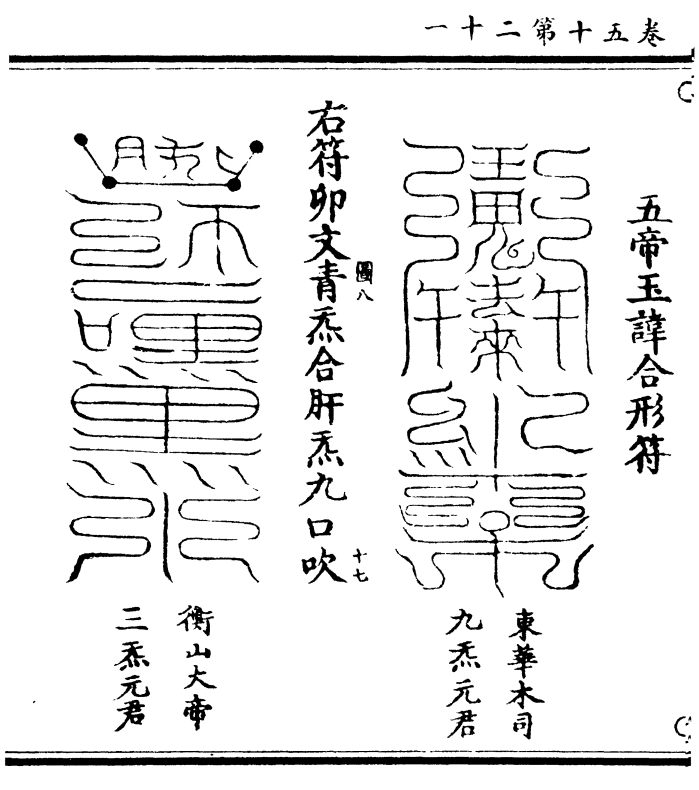 卷五十第二十一
五帝玉諱合形符
東華木司
九炁元君
圖八
十七
右符卯文青炁合肝炁九口吹
衡山大帝
三炁元君